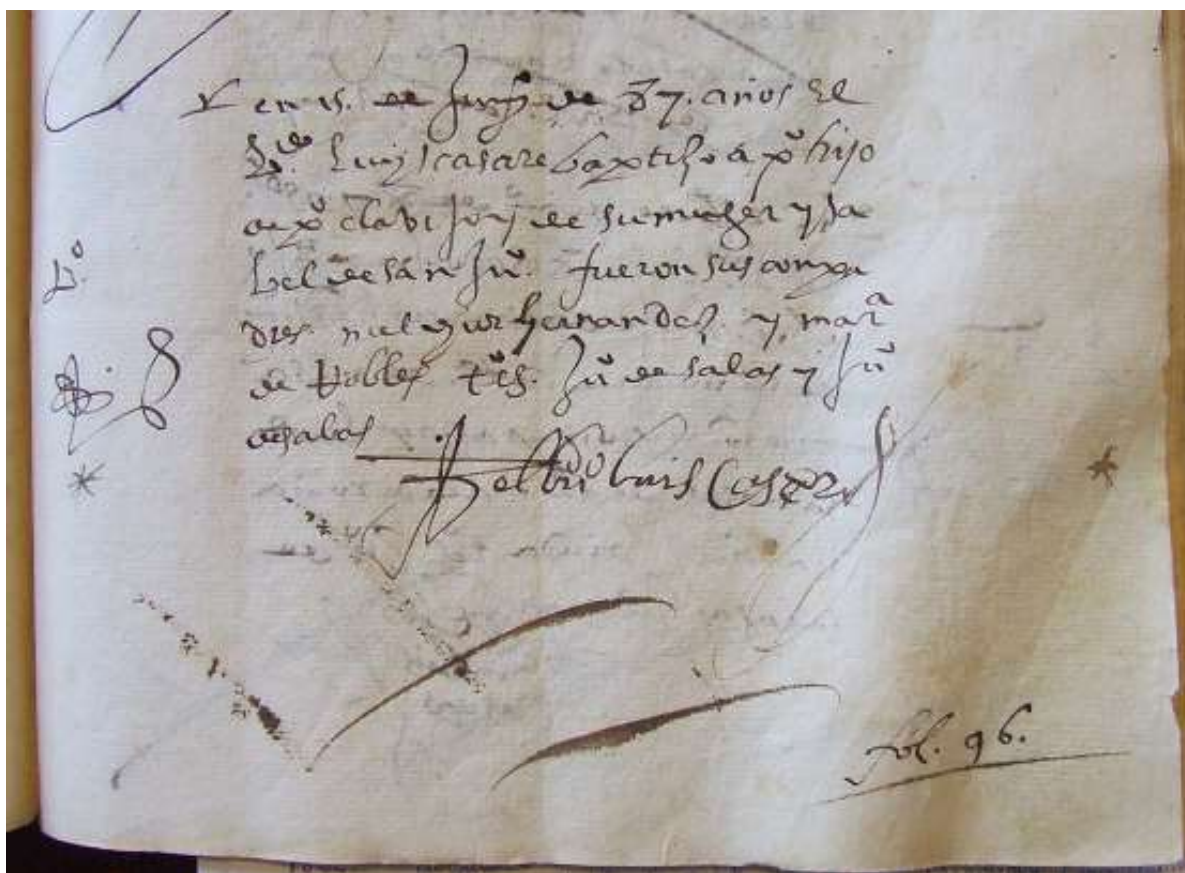 en 15. de Junio de 87. años El
Ldo. Luis casare baptizo a po hijo
de po clavijo y de su muger ysa
bel de san Ju. fueron sus conpa
dres melchior hernandez y mara
de Robles tes. Ju de salas y Ju
de salas
po
el bdo Luis
fol. 96.